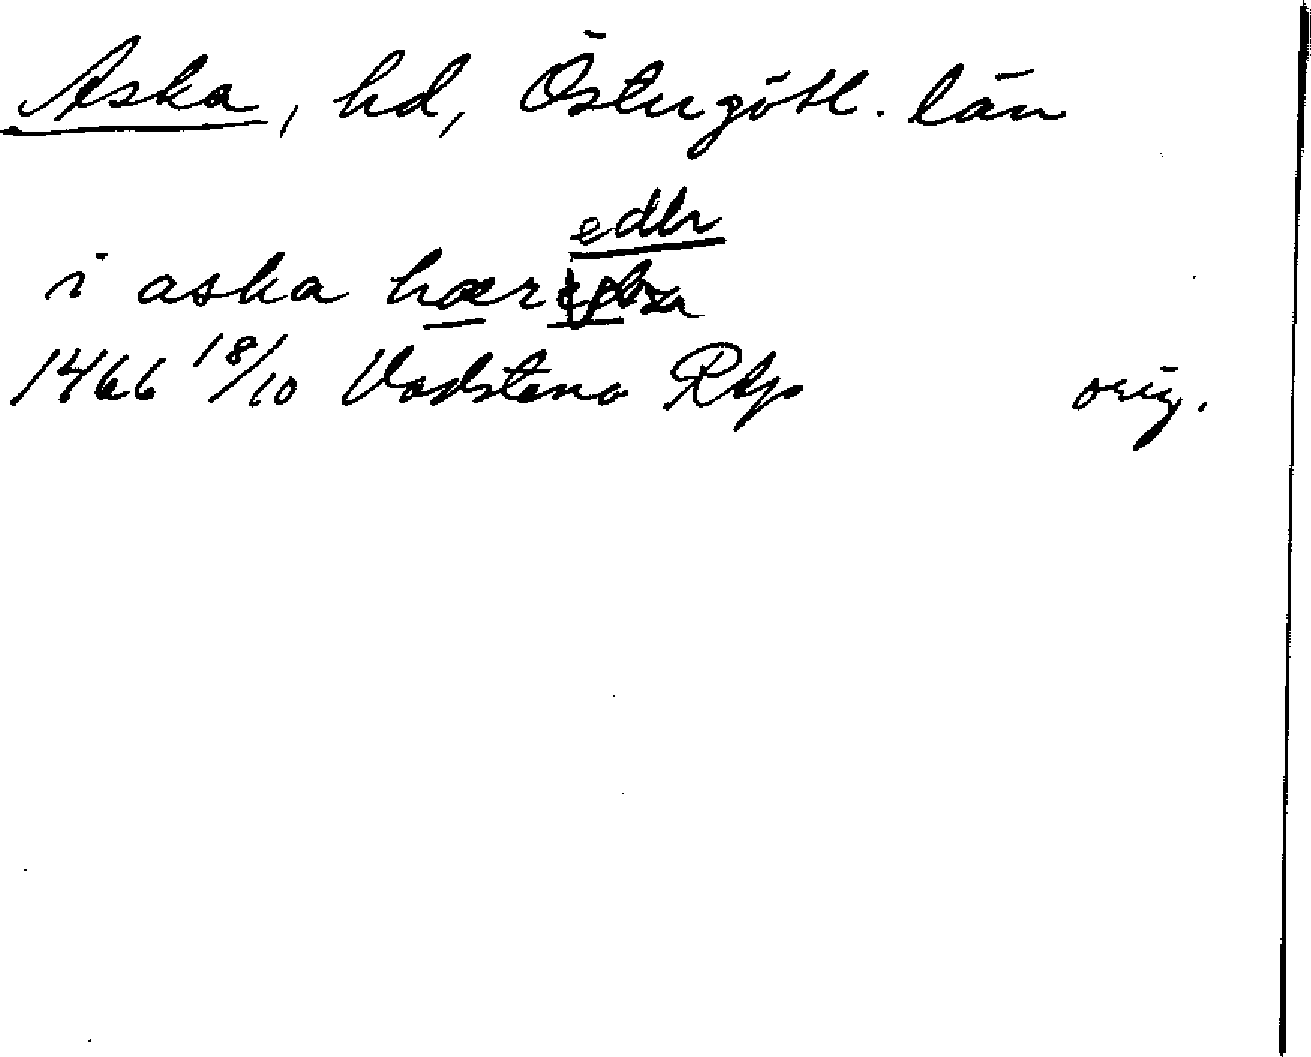 Aska, hd, Östergötl. län
edhr
i aska hær
1466 18/10 Vadstena RAp orig.